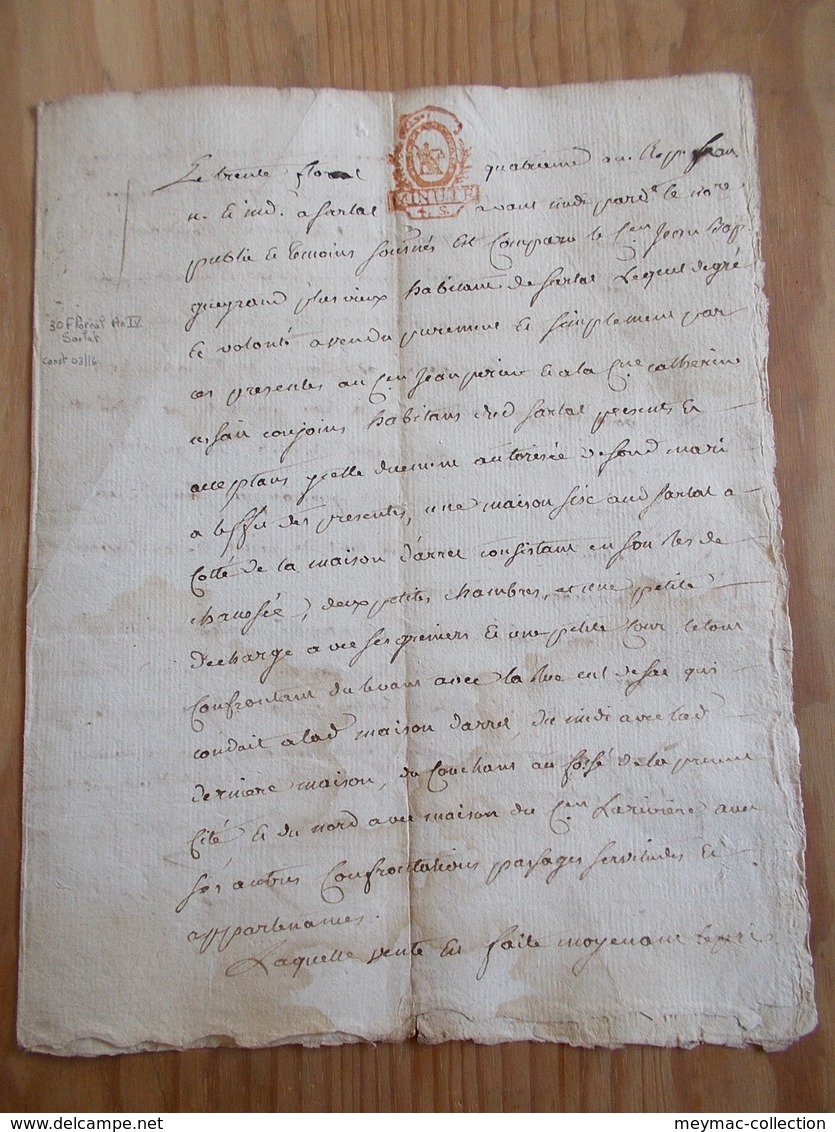 Le trente floreal quatrieme an. Rep. fran
MINUTE
4. S.
n. et ind. a Sarlat avant midi pard. le nore
publiq et temoins sousnes Est Comparu le Cen Jean Bap
gueyraud plus vieux habitant de Sarlat Lequel de gré
30 Floreal An IV
Sarlat
et volonté a vendu purement et simplement par
ces presentes au Cen Jean et a la Cne catherine
conjoins habitans dud Sarlat presents et
acceptans icelle duement autorisée de sond mari
a leffet des presentes, une maison sise aud Sarlat a
Cotté de la maison d'arret consistant en son res de
chaussée, deux petites chambres, et une petite
decharge avec ses greniers et une petite Cour le tout
Confrontant du levant avec la Rue cul de sac qui
conduit a lad maison d'arret, du midi avec lad
derniere maison, du Couchant au fossé de la presente
Cité et du nord avec maison du Cen Lariviere, avec
ses autres Confrontations passages servitudes et
appartenances.
Laquelle vente est faite moyenant le prix
meymac-collection